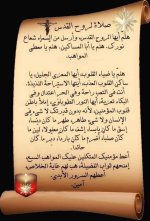 صلاة الروح القدس
هلم أيها الروح القدس، وأرسل من السماء شعاع
نورك. هلم يا أبا المساكين. هلم يا معطي
المواهب.
هلم يا ضياء القلوب، أيها المعزي الجليل، يا
ساكن القلوب العذب، أيتها الاستراحة اللذيذة،
أنت في التعب راحة، وفي الحر اعتدال، وفي
البكاء تعزية، أيها النور الطوباوي، إملأ باطن
قلوب مؤمنيك، لأنه بدون قدرتك لا شيء في
الإنسان ولا شيء طاهر، طهر ما كان دنسا،
إسق ما كان يابسا، إشف ما كان معلولا، لين ما
كان صلبا، أضرم ما كان باردا، دبر ما كان
حائدا.
أعط مؤمنيك المتكلين عليك المواهب السبع،
إمنحهم ثواب الفضيلة، هب لهم غاية الخلاص،
أعطهم السرور الأبدي.
آمين.